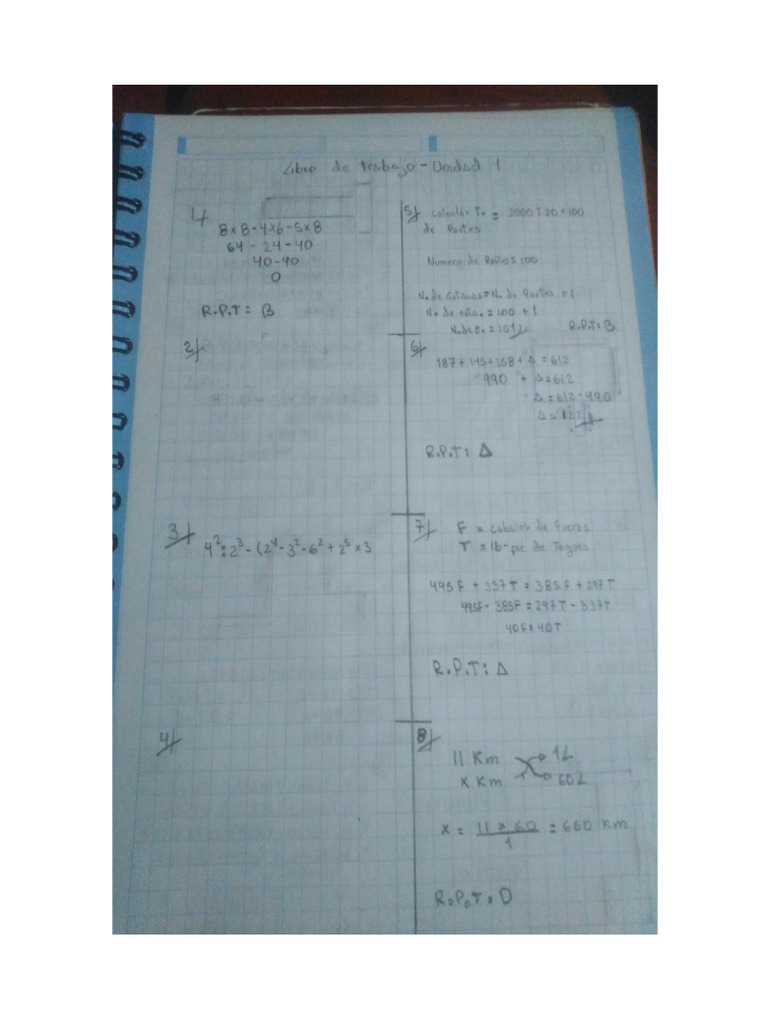 Libro de trabajo - Unidad 1
1/
8x8-4x6-5x8
64 - 24 - 40
40-40
0
R.P.T: B
2/
3/
4²:2³-(2⁴-3²-6²+2⁵x3
4/
5/ Calcular T. = 2000:20=100
de Partes
Numero de Partes = 100
N. de estacas = N. de Partes +1
N. de esta. = 100 + 1
N. de E. = 101
R.P.T: B
6/
187+145+158+Δ=612
990 + Δ=612
Δ=612-490
R.P.T: Δ
7/
F = caballos de Fuerza
T = lb-pie de Torque
495F + 337T = 385F + 297T
495F-385F=297T-337T
40F=40T
R.P.T: Δ
8/
11 Km 1L
x Km 60L
x = 11 x 60 / 1 = 660 Km
R.P.T: D